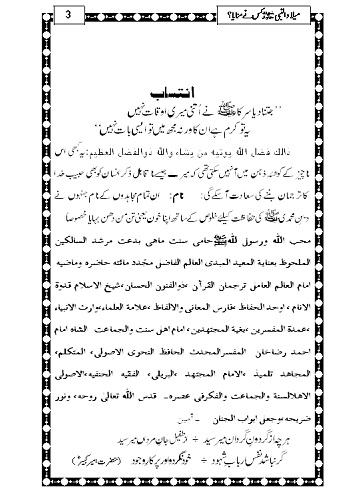 3
میلاد النبی ﷺ کس نے منایا؟
انتساب
"جتنا دیا سرکار ﷺ نے اتنی میری اوقات نہیں
یہ تو کرم ہے ان کا ورنہ مجھ میں تو ایسی بات نہیں"
ذالک فضل اللہ یوتیہ من یشاء واللہ ذوالفضل العظیم: یہ کبھی اس
ناچیز کے گوشہ ذہن میں آ نہیں سکتی تھی کہ میرے جیسے ناقابل ذکر انسان کو بھی حبیب خدا
کا ترجمان بننے کی سعادت آ سکے گی: نام: ان تمام مجاہدوں کے نام جنہوں نے
دین محمدی ﷺ کی حفاظت کیلئے خلوص کے ساتھ اپنا خون یعنی تن من دھن بہایا خصوصاً
محب اللہ ورسولی للہ ﷺ حامی سنت ماھی بدعت مرشد السالکین
الملحوظ بعنایة المعید المبدی العالم الفاضل مجدد مائتہ حاضرہ وماضیہ
امام العالم العامل ترجمان القرآن ،ذوالفنون الحسان،شیخ الاسلام قدوة
الانام ، اوحد الحفاظ ،فارس المعانی والالفاظ ،علامة العلماء،وارث الانبیاء
،عمدة المفسرین ،بغیة المجتھدین،امام اھل سنت والجماعت الشاہ امام
احمد رضاخان المفسر المحدث الحافظ النحوی الاصولی، المتکلم،
المجاھد تلمیذ ،الامام المجتھد ،البریلی، الفقیة الحنفیه،الاصولی
الاھلالسنة والجماعت والفکر فی عصرہ۔ قدس اللہ تعالی روحہ، ونور
ضریحہ،وجعلی ابواب الجنان ۔
ہر چہ از گردون گردان میرسید ÷ از طفیل جان مرداں میرسید
گر نباشد نفس رباب شہود ÷ خود نگردد اور پر کار وجود (حضرت امیر کبیرؒ)